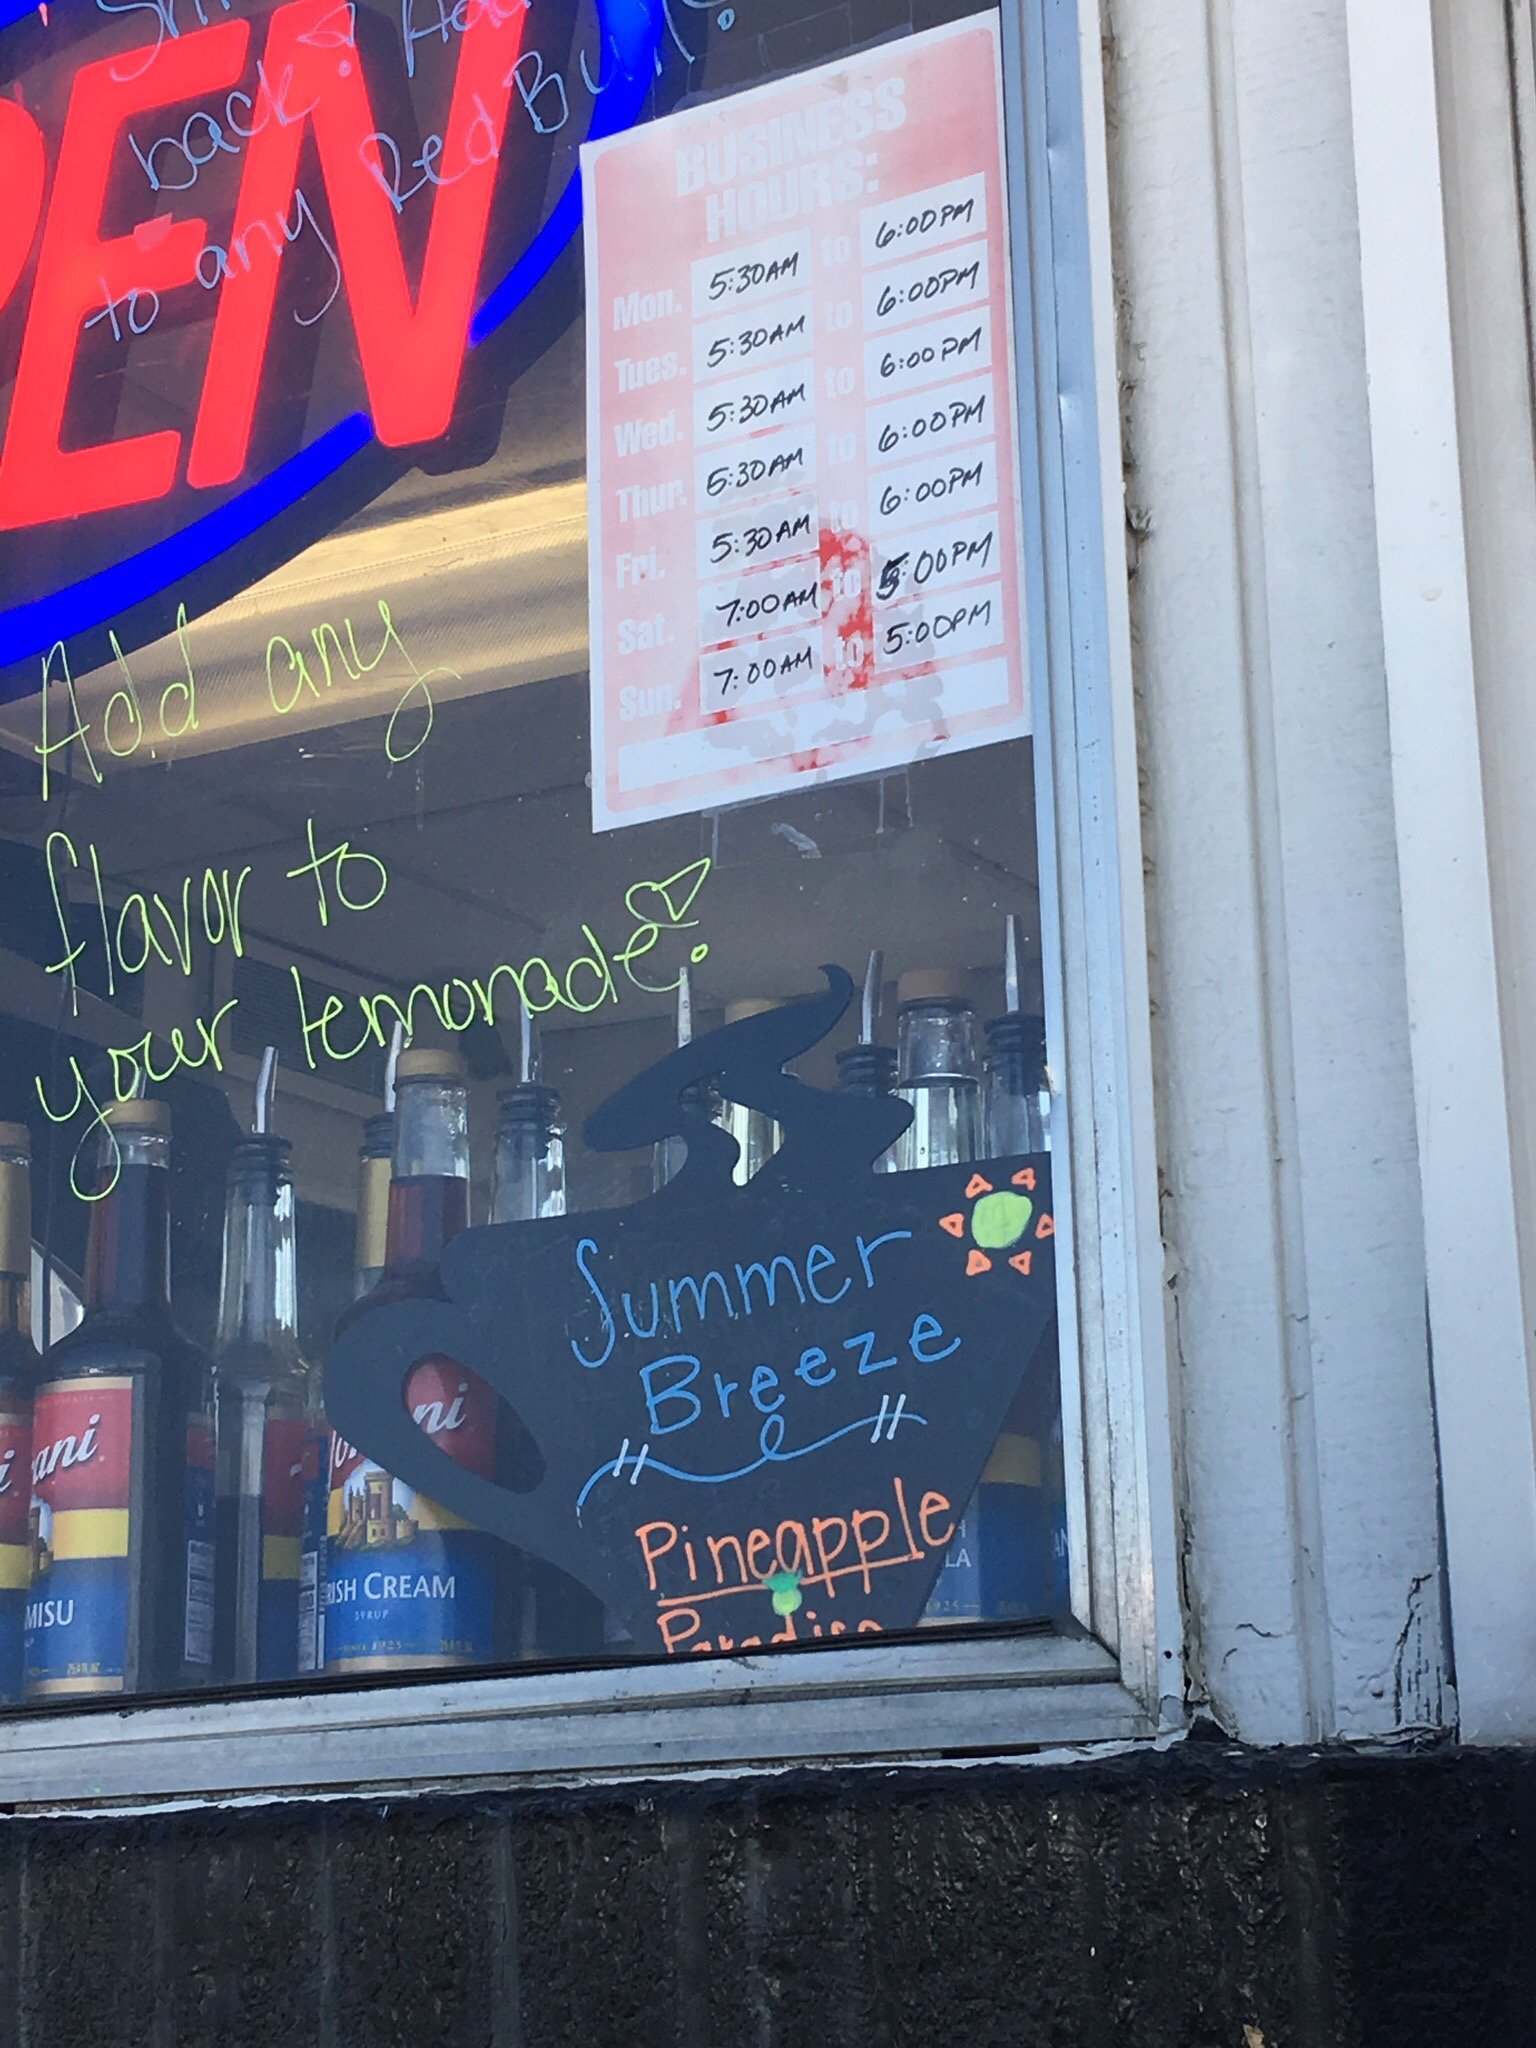 back! Add
to any Red Bull!
PEN
BUSINESS
HOURS:
Mon. 5:30AM to 6:00PM
Tues. 5:30AM to 6:00PM
Wed. 5:30AM to 6:00PM
Thur. 5:30AM to 6:00PM
Fri. 5:30AM to 6:00PM
Sat. 7:00AM to 5:00PM
Sun. 7:00AM to 5:00PM
Add any
flavor to
your lemonade!
Summer
Breeze
Pineapple
Paradise
ani
MISU
ani
RISH CREAM
SYRUP
SINCE 1925
LA